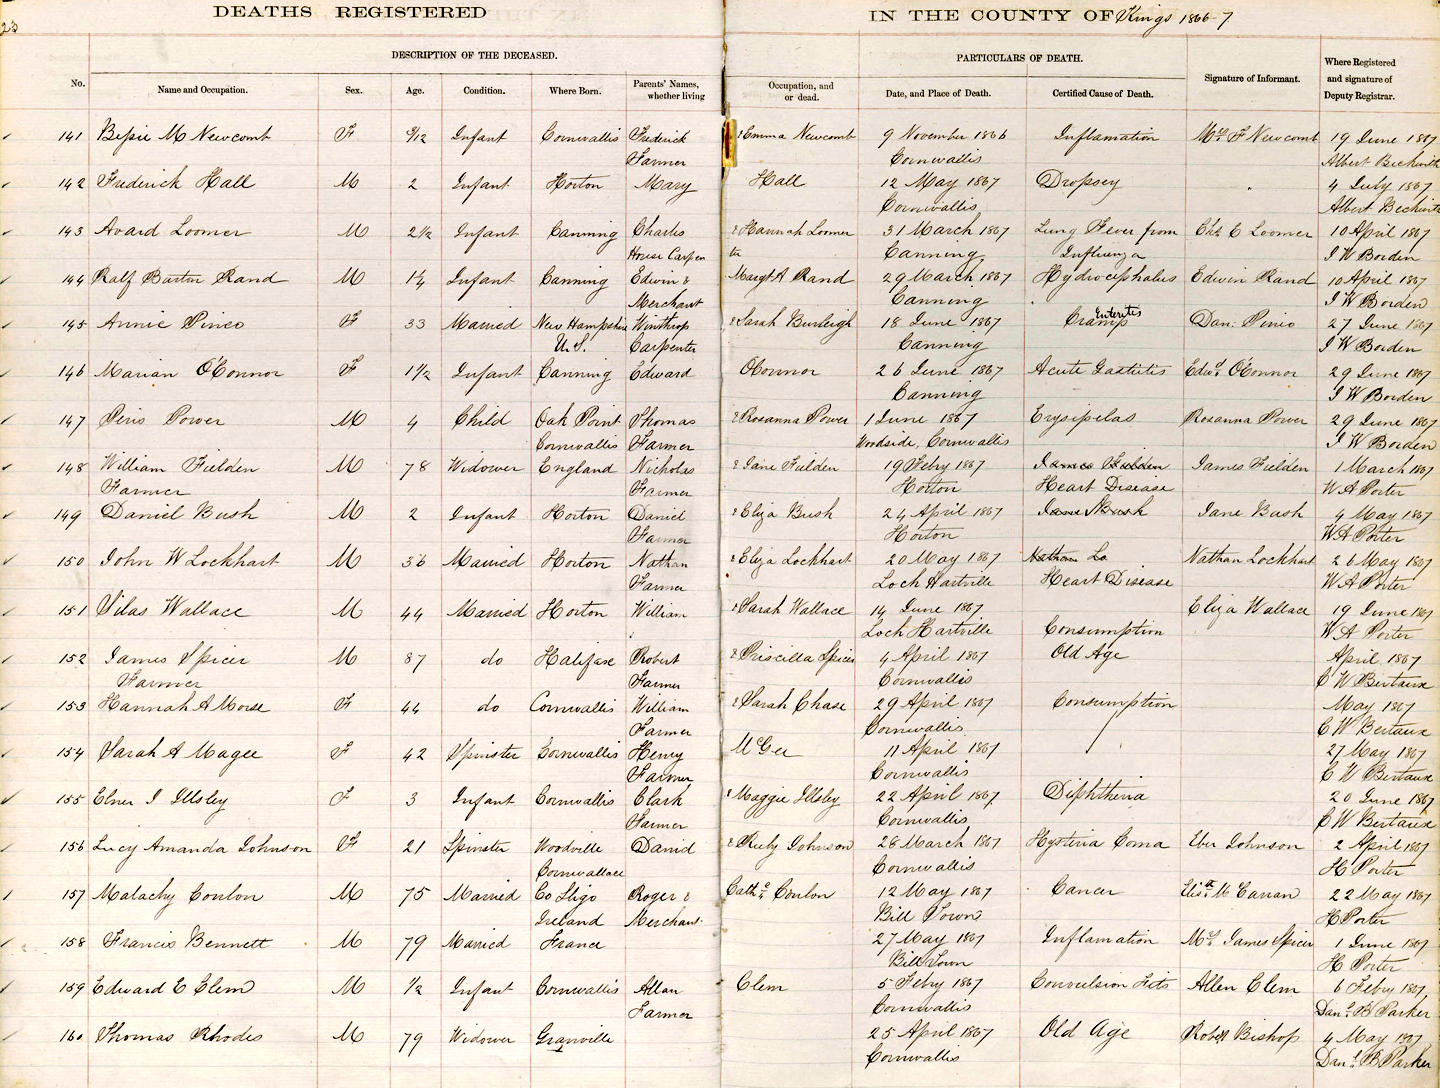 23
DEATHS REGISTERED IN THE COUNTY OF Kings 1866-7
DESCRIPTION OF THE DECEASED. PARTICULARS OF DEATH.
No. Name and Occupation. Sex. Age. Condition. Where Born. Parents' Names, whether living Occupation, and or dead. Date, and Place of Death. Certified Cause of Death. Signature of Informant. Where Registered and signature of Deputy Registrar.
141 Bessie M Newcomb F 9/12 Infant Cornwallis Frederick & Emma Newcomb 9 November 1866 Inflamation Mrs F Newcomb 19 June 1867
Farmer Cornwallis Albert Beckwith
142 Frederick Hall M 2 Infant Horton Mary Hall 12 May 1867 Dropsey 4 July 1867
Cornwallis Albert Beckwith
143 Avard Loomer M 2½ Infant Canning Charles & Hannah Loomer 31 March 1867 Lung Fever from Chs E Loomer 10 April 1867
House Carpen ter Canning Influenza I W Borden
144 Ralf Barton Rand M 1¼ Infant Canning Edwin & Margt A Rand 29 March 1867 Hydrocephales Edwin Rand 10 April 1867
Merchant Canning I W Borden
145 Annie Pineo F 33 Married New Hampshire Winthrop & Sarah Burleigh 18 June 1867 Cramp Enteritis Dan: Pineo 27 June 1867
U.S. Carpenter Canning I W Borden
146 Marian O'Connor F 1½ Infant Canning Edward OConnor 26 June 1867 Acute Gastritis Edwd O'Connor 29 June 1867
Canning I W Borden
147 Peris Power M 4 Child Oak Point Thomas & Rosanna Power 1 June 1867 Erysipelas Rosanna Power 29 June 1867
Cornwallis Farmer Woodside, Cornwallis I W Borden
148 William Fielden M 78 Widower England Nicholas & Jane Fielden 19 Febry 1867 James Fielden James Fielden 1 March 1867
Farmer Farmer Horton Heart Disease W A Porter
149 Daniel Bush M 2 Infant Horton Daniel & Eliza Bush 24 April 1867 Jane Bush Jane Bush 4 May 1867
Farmer Horton W A Porter
150 John W Lockhart M 36 Married Horton Nathan & Eliza Lockhart 20 May 1867 Nathan Lo Nathan Lockhart 26 May 1867
Farmer Loch Hartville Heart Disease W A Porter
151 Silas Wallace M 44 Married Horton William & Sarah Wallace 14 June 1867 Eliza Wallace 19 June 1867
Loch Hartville Consumption W A Porter
152 James Spicer M 87 do Halifax Robert & Priscilla Spicer 4 April 1867 Old Age April 1867
Farmer Farmer Cornwallis C W Bertaux
153 Hannah A Morse F 44 do Cornwallis William & Sarah Chase 29 April 1867 Consumption May 1867
Farmer Cornwallis C W Bertaux
154 Sarah A Magee F 42 Spinster Cornwallis Henry McGee 11 April 1867 27 May 1867
Farmer Cornwallis C W Bertaux
155 Elner I Illsley F 3 Infant Cornwallis Clark & Maggie Illsley 22 April 1867 Diphtheria 20 June 1867
Farmer Cornwallis C W Bertaux
156 Lucy Amanda Johnson F 21 Spinster Woodville David & Ruby Johnson 28 March 1867 Hysteria Coma Eber Johnson 2 April 1867
Cornwallace Cornwallis H Porter
157 Malachy Conlon M 75 Married Co Sligo Roger & Cathe Conlon 12 May 1867 Cancer Elisth McCarran 22 May 1867
Ireland Merchant Bill Town H Porter
158 Francis Bennett M 79 Married France 27 May 1867 Inflamation Mrs James Spicer 1 June 1867
Bill Town H Porter
159 Edward E Clem M ½ Infant Cornwallis Allan Clem 5 Febry 1867 Convulsion Fits Allen Clem 6 Febry 1867
Farmer Cornwallis Danl B Parker
160 Thomas Rhodes M 79 Widower Granville 25 April 1867 Old Age Robert Bishop 4 May 1867
Cornwallis Danl B Parker